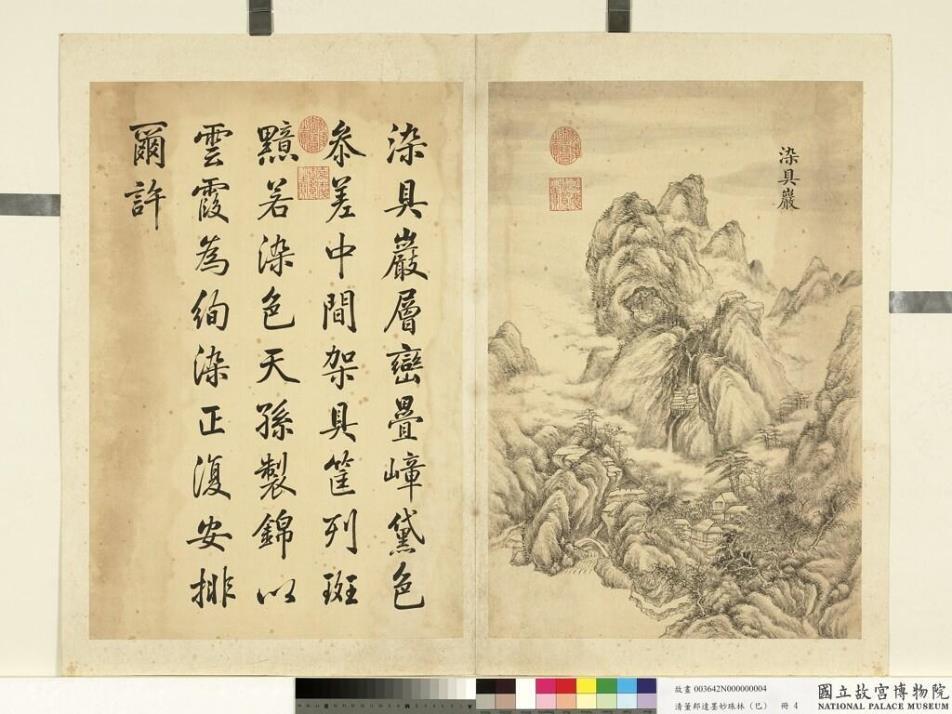 染具巖
染具巖層巒疊嶂黛色
參差中間架具筐列斑
黰若染色天孫製錦以
雲霞為絢染正復安排
爾許
故畫 003642N000000004
清董邦達墨妙珠林（巳） 冊 4
國立故宮博物院
NATIONAL PALACE MUSEUM